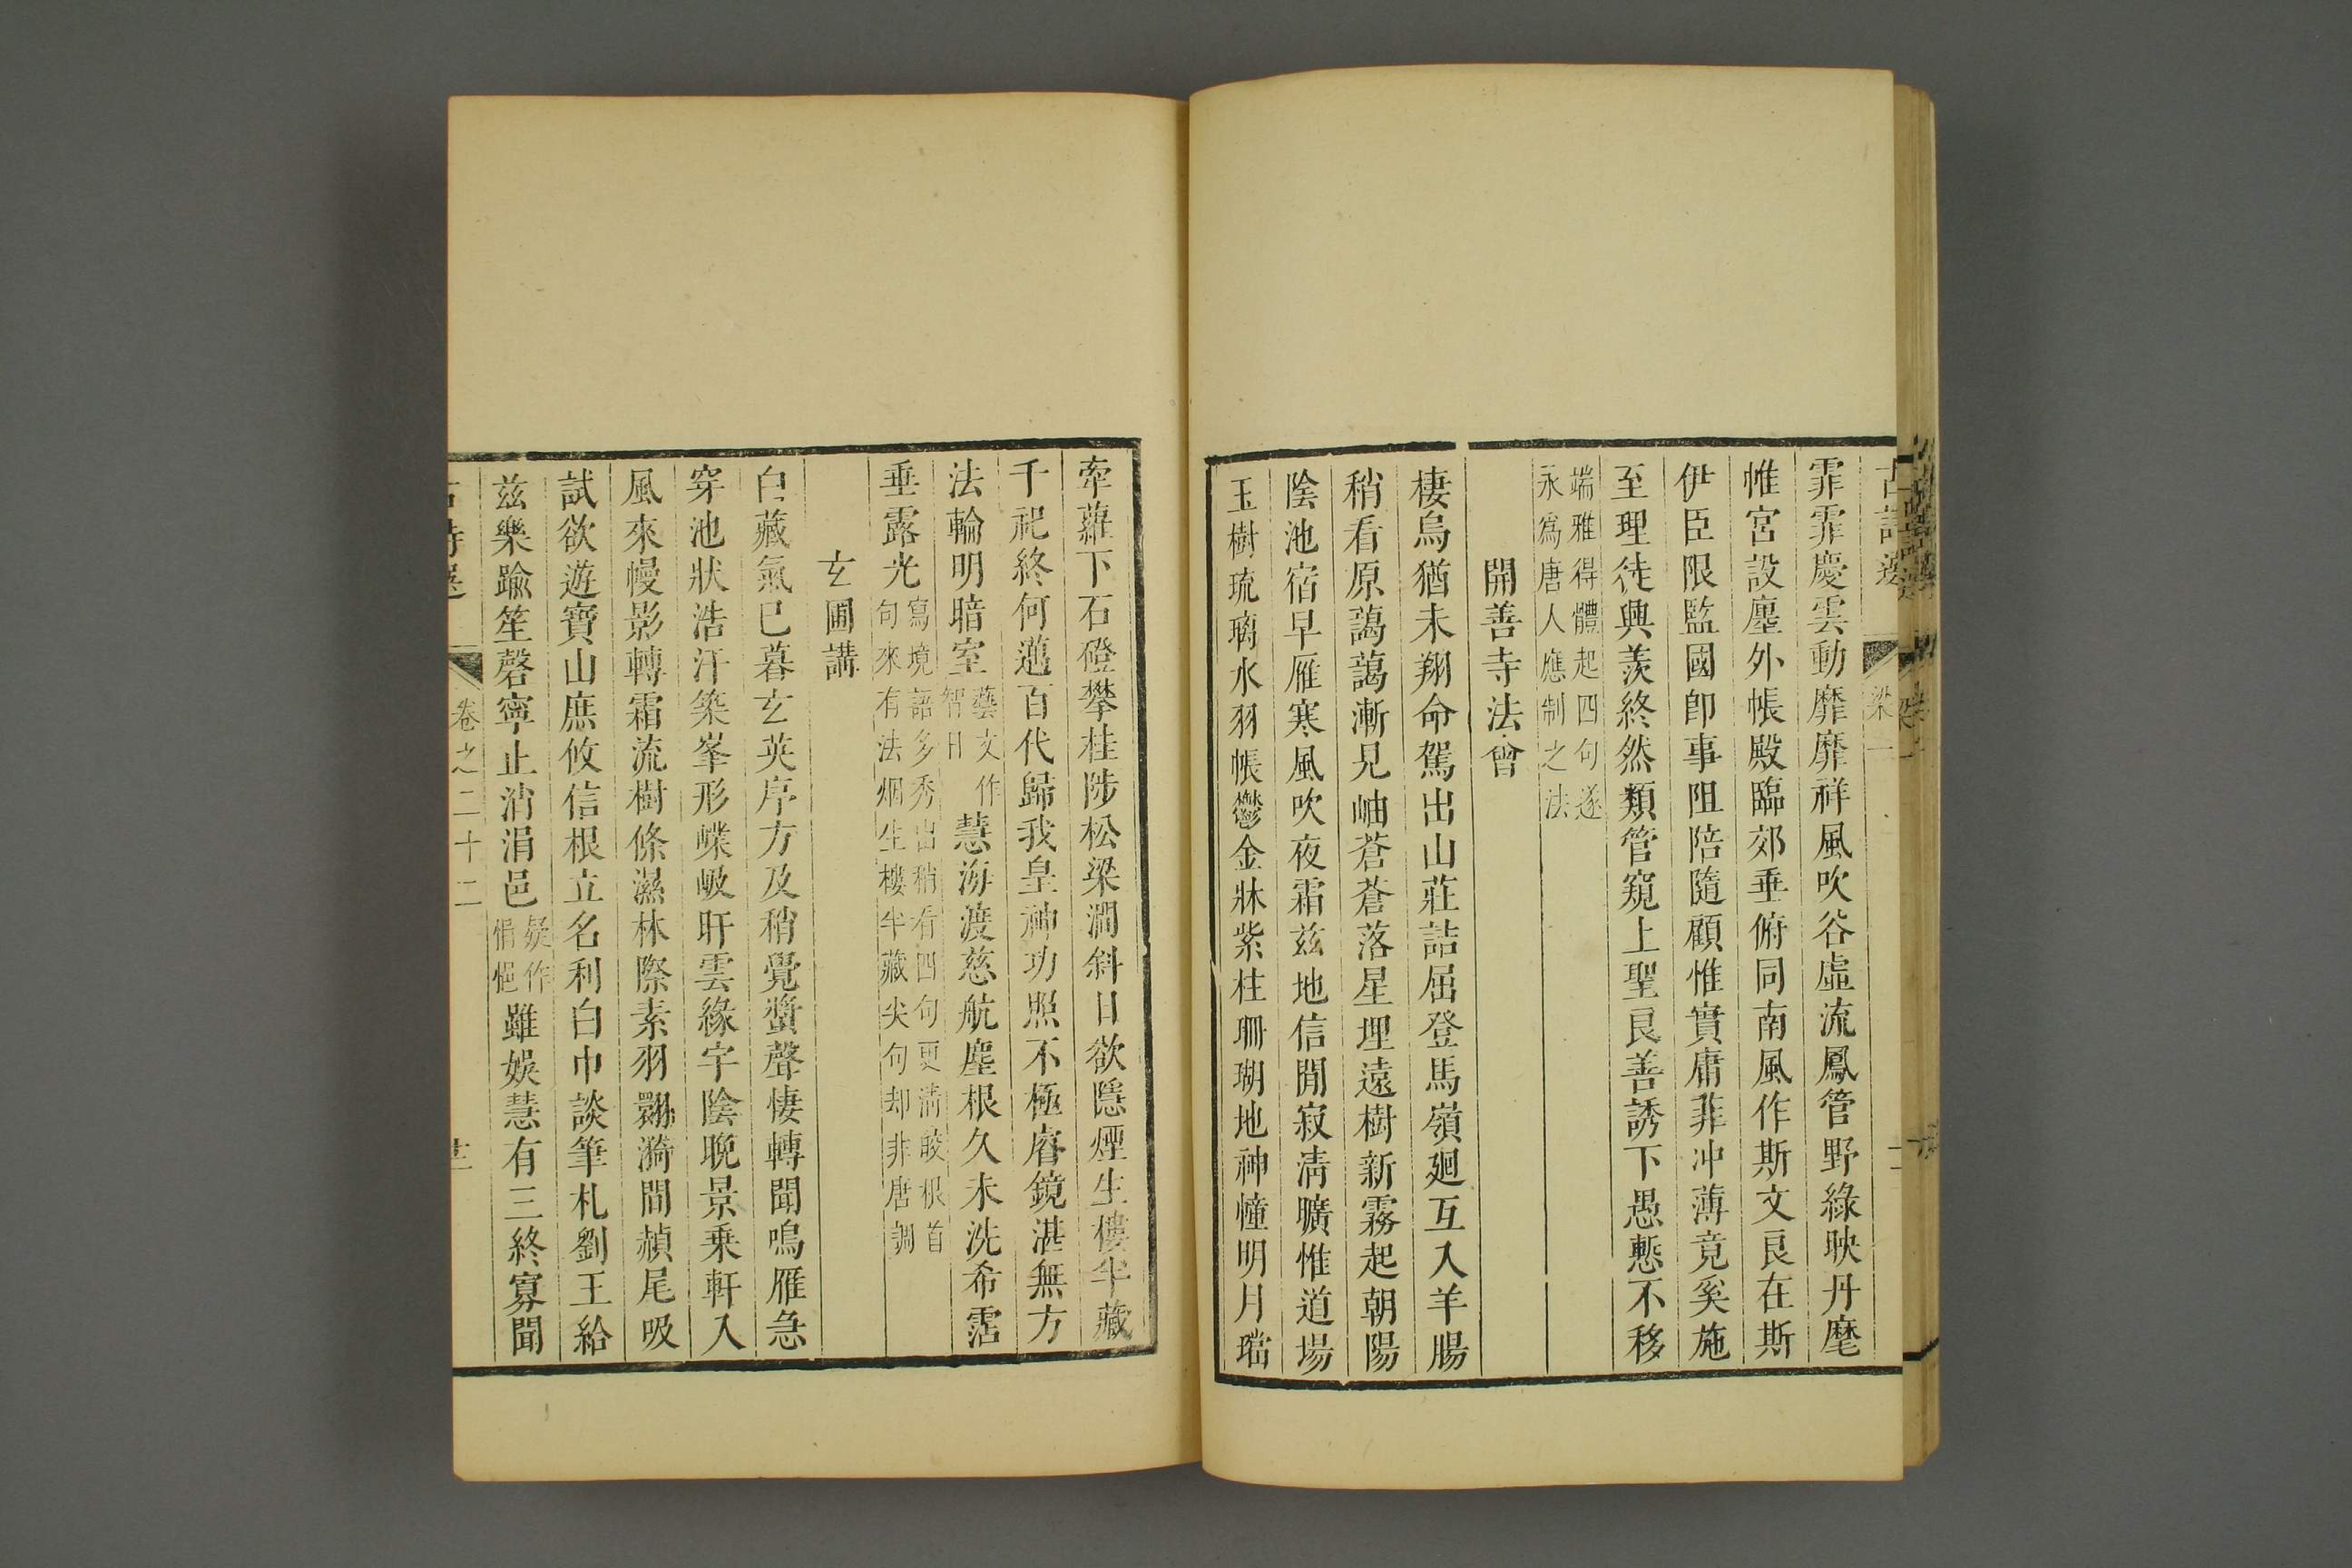 霏霏慶雲動靡靡祥風吹谷虛流鳳管野綠映丹麾
帷宮設廛外帳殿臨郊垂俯同南風作斯文良在斯
伊臣限監國卽事阻陪隨顧惟實庸菲冲薄竟奚施
至理徒興羨終然類管窺上聖良善誘下愚慙不移
端雅得體起四句遂
永爲唐人應制之法
開善寺法會
棲烏猶未翔命駕出山莊詰屈登馬嶺廻互入羊腸
稍看原藹藹漸見岫蒼蒼落星埋遠樹新霧起朝陽
陰池宿早雁寒風吹夜霜兹地信閒寂清曠惟道場
玉樹琉璃水羽帳鬱金牀紫柱珊瑚地神幢明月璫
牽蘿下石磴攀桂陟松梁澗斜日欲隱煙生樓半藏
千祀終何邁百代歸我皇神功照不極睿鏡湛無方
法輪明暗室
藝文作
智日
慧海渡慈航塵根久未洗希霑
垂露光
寫境語多秀出稍看四句更清皎根首
句來有法烟生樓半藏尖句却非唐調
玄圃講
白藏氣已暮玄英序方及稍覺螿聲悽轉聞鳴雁急
穿池狀浩汗築峯形嶫岋旰雲緣宇陰晚景乗軒入
風來幔影轉霜流樹條濕林際素羽翾漪間赬尾吸
試欲遊寶山庶攸信根立名利白巾談筆札劉王給
兹樂踰笙磬寧止消涓邑
疑作
悁悒
雖娛慧有三終寡聞
卷之二十二